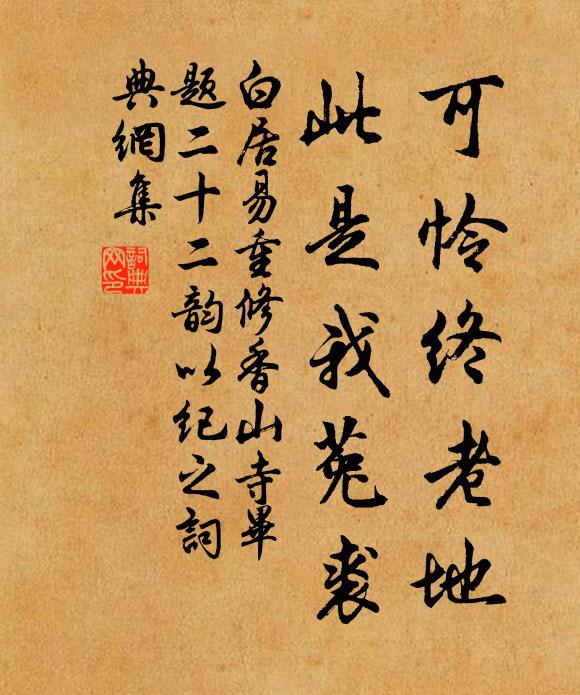 可怜终老地
此是我菟裘
白居易重修香山寺畢
题二十二韵以纪之詞
典網集
詞典
网印